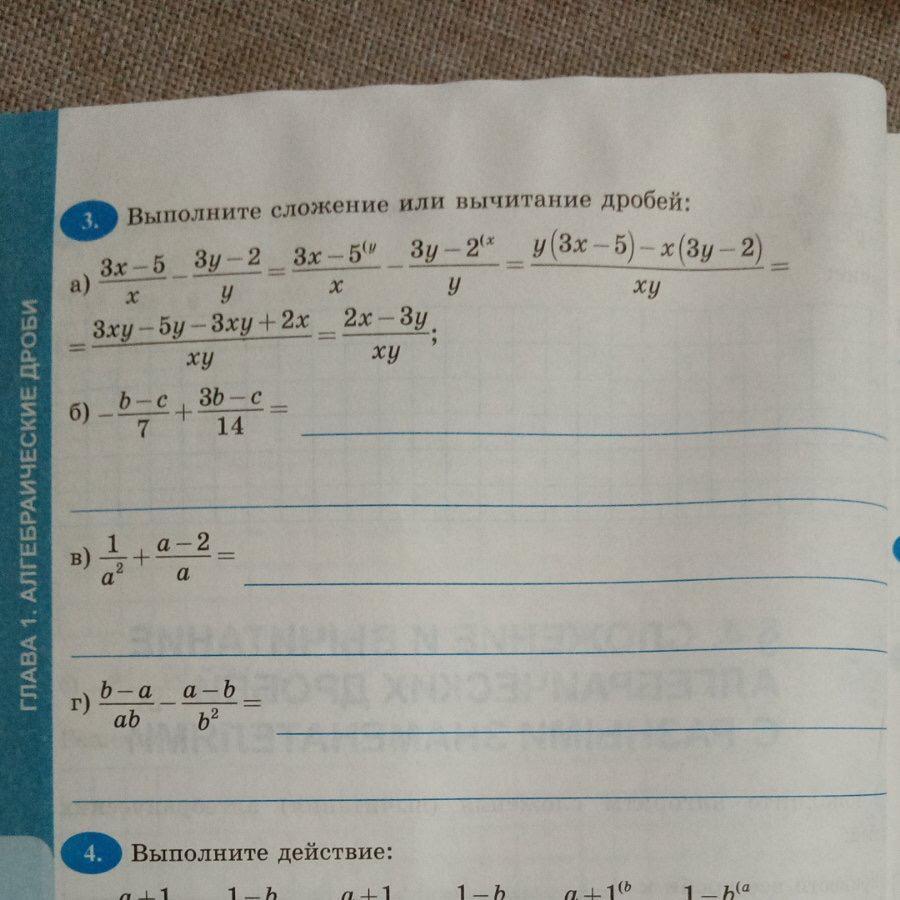 ГЛАВА 1. АЛГЕБРАИЧЕСКИЕ ДРОБИ
3. Выполните сложение или вычитание дробей:
а) (3x – 5)/x – (3y – 2)/y = (3x – 5^(y)/x – (3y – 2^(x)/y = (y(3x – 5) – x(3y – 2))/xy =
= (3xy – 5y – 3xy + 2x)/xy = (2x – 3y)/xy;
б) –(b – c)/7 + (3b – c)/14 =
в) 1/a² + (a – 2)/a =
г) (b – a)/ab – (a – b)/b² =
4. Выполните действие:
a + 1 1 – b a + 1 1 – b a + 1^(b 1 – b^(a